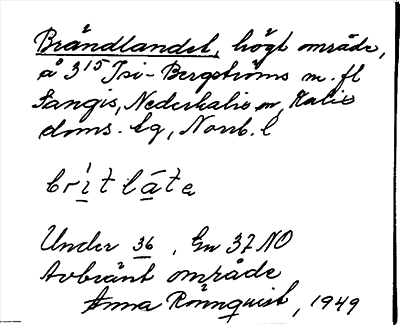 Brändlandet, högt område,
å 3¹⁵ Isi-Bergströms m. fl
Sangis, Nederkalix sn, Kalix
doms. tg, Norrb. l
britläta
Under 36, Gn 37 NO
Avbränt område
Anna Rönnquist, 1949